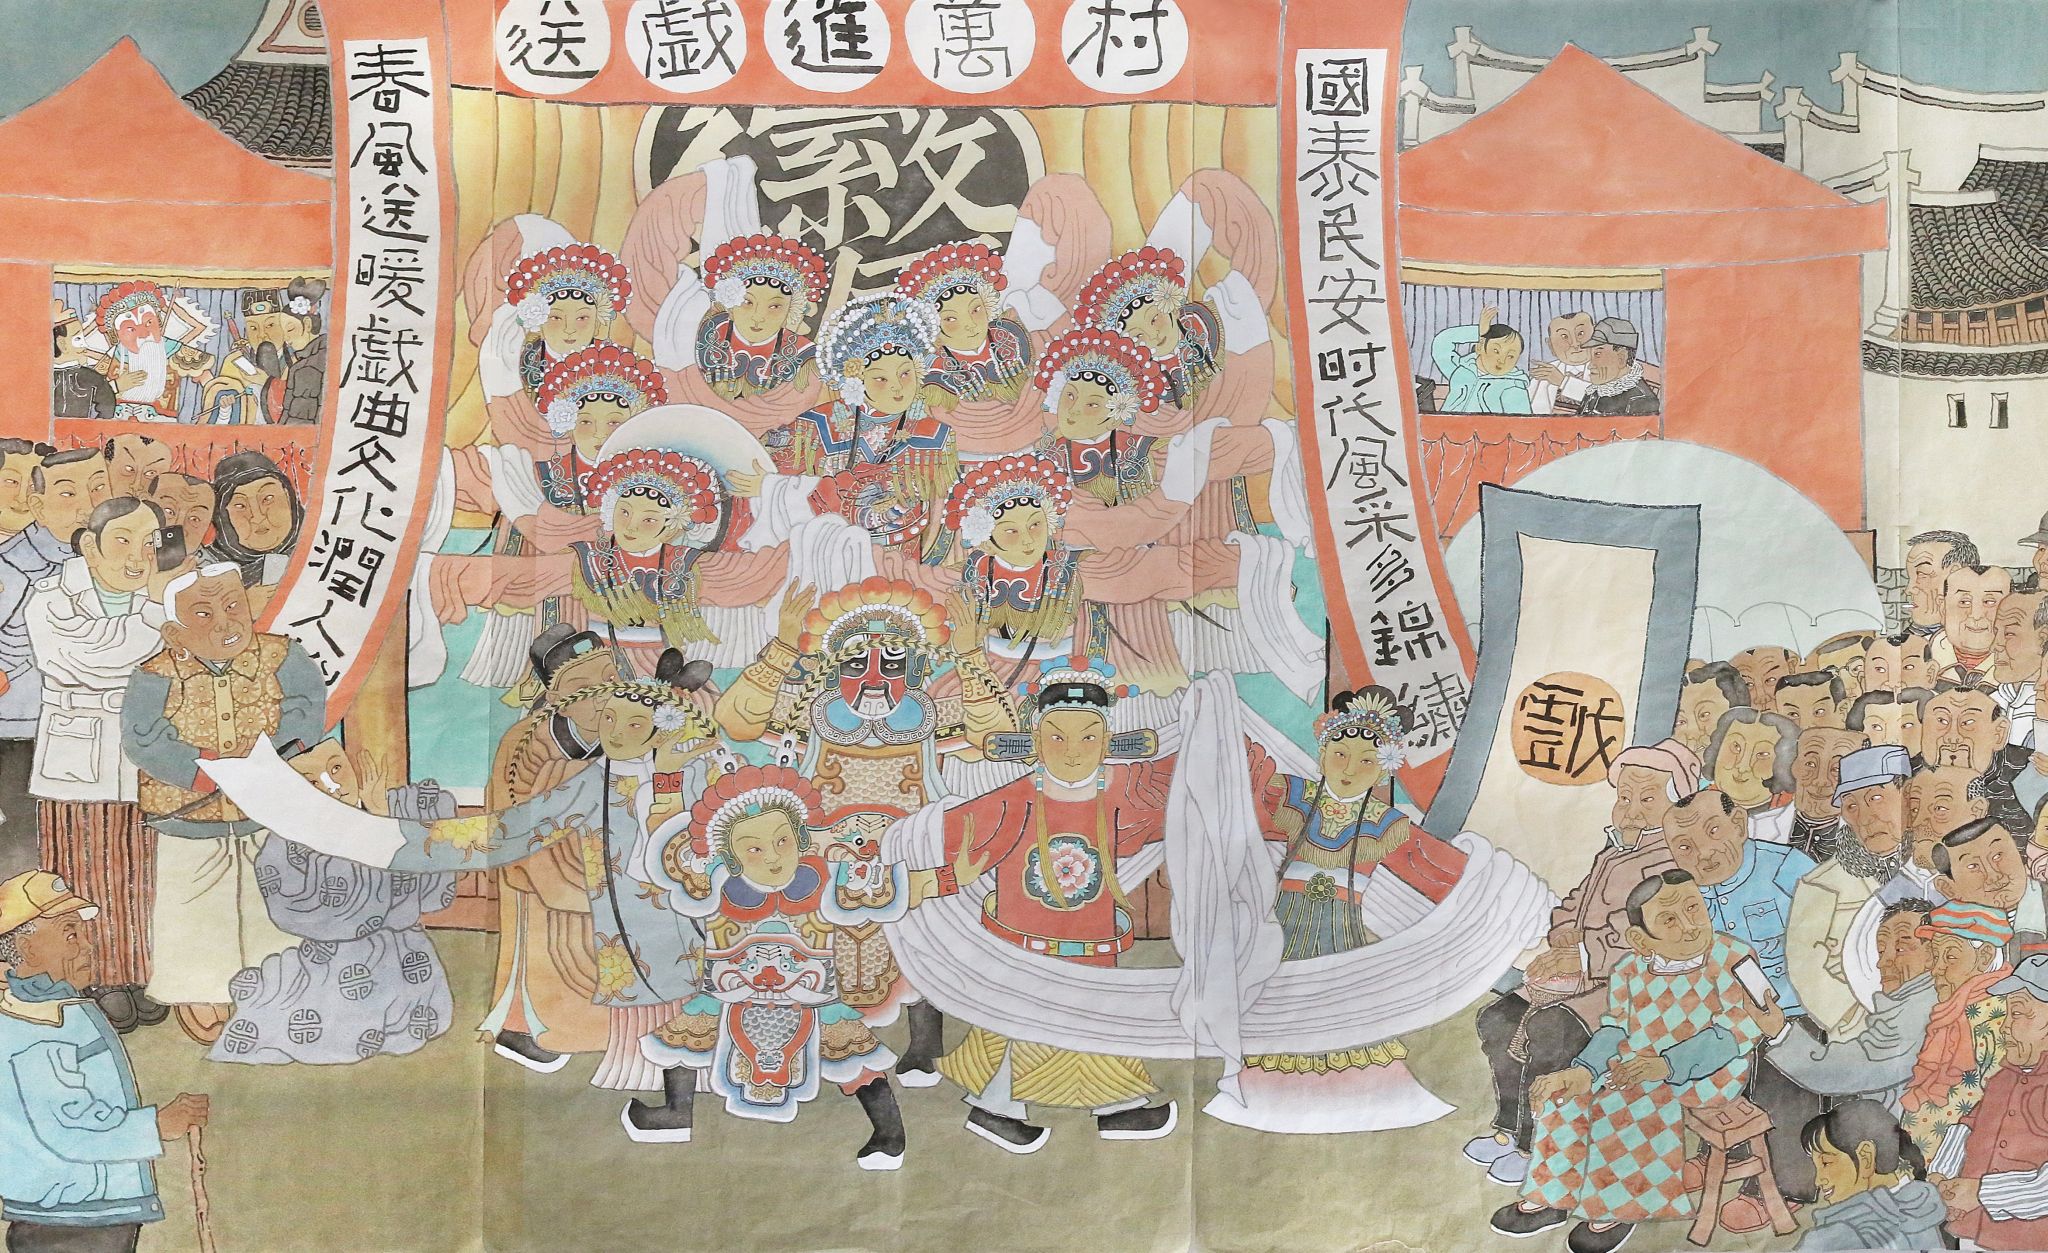 送戯進萬村
春風送暖戯曲文化潤人心
國泰民安时代風采多錦繡
繁
戲